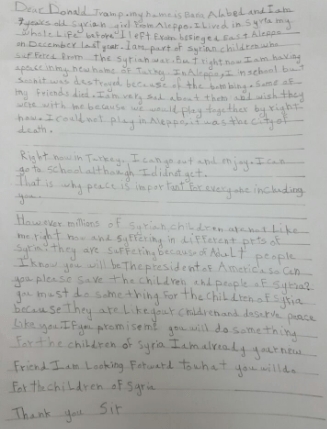 Dear Donald Trump, my name is Bana Alabed and I am
7 years old Syrian girl from Aleppo. I lived in Syria my
whole life before I left from besieged East Aleppo
on December last year. I am part of Syrian children who
suffered from the Syrian war. But right now I am having
a peace in my new home of Turkey. In Aleppo, I in school but
soon it was destroyed because of the bombing. Some of
my friends died. I am very sad about them and wish they
were with me because we would play together by right
now. I could not play in Aleppo, it was the city of
death.
Right now in Turkey, I can go out and enjoy. I can
go to school although I didn't yet.
That is why peace is important for everyone including
you.
However millions of Syrian children are not like
me right now and suffering in different parts of
Syria. they are suffering because of Adult people
I know you will be The president of America so Can
you please save the children and people of syria?
you must do something for the children of Syria
because They are Like your children and deserve peace
Like you. If you promise me you will do something
For the children of syria I am already your new
Friend. I am Looking Forward to what you will do
For the children of Syria
Thank you Sir